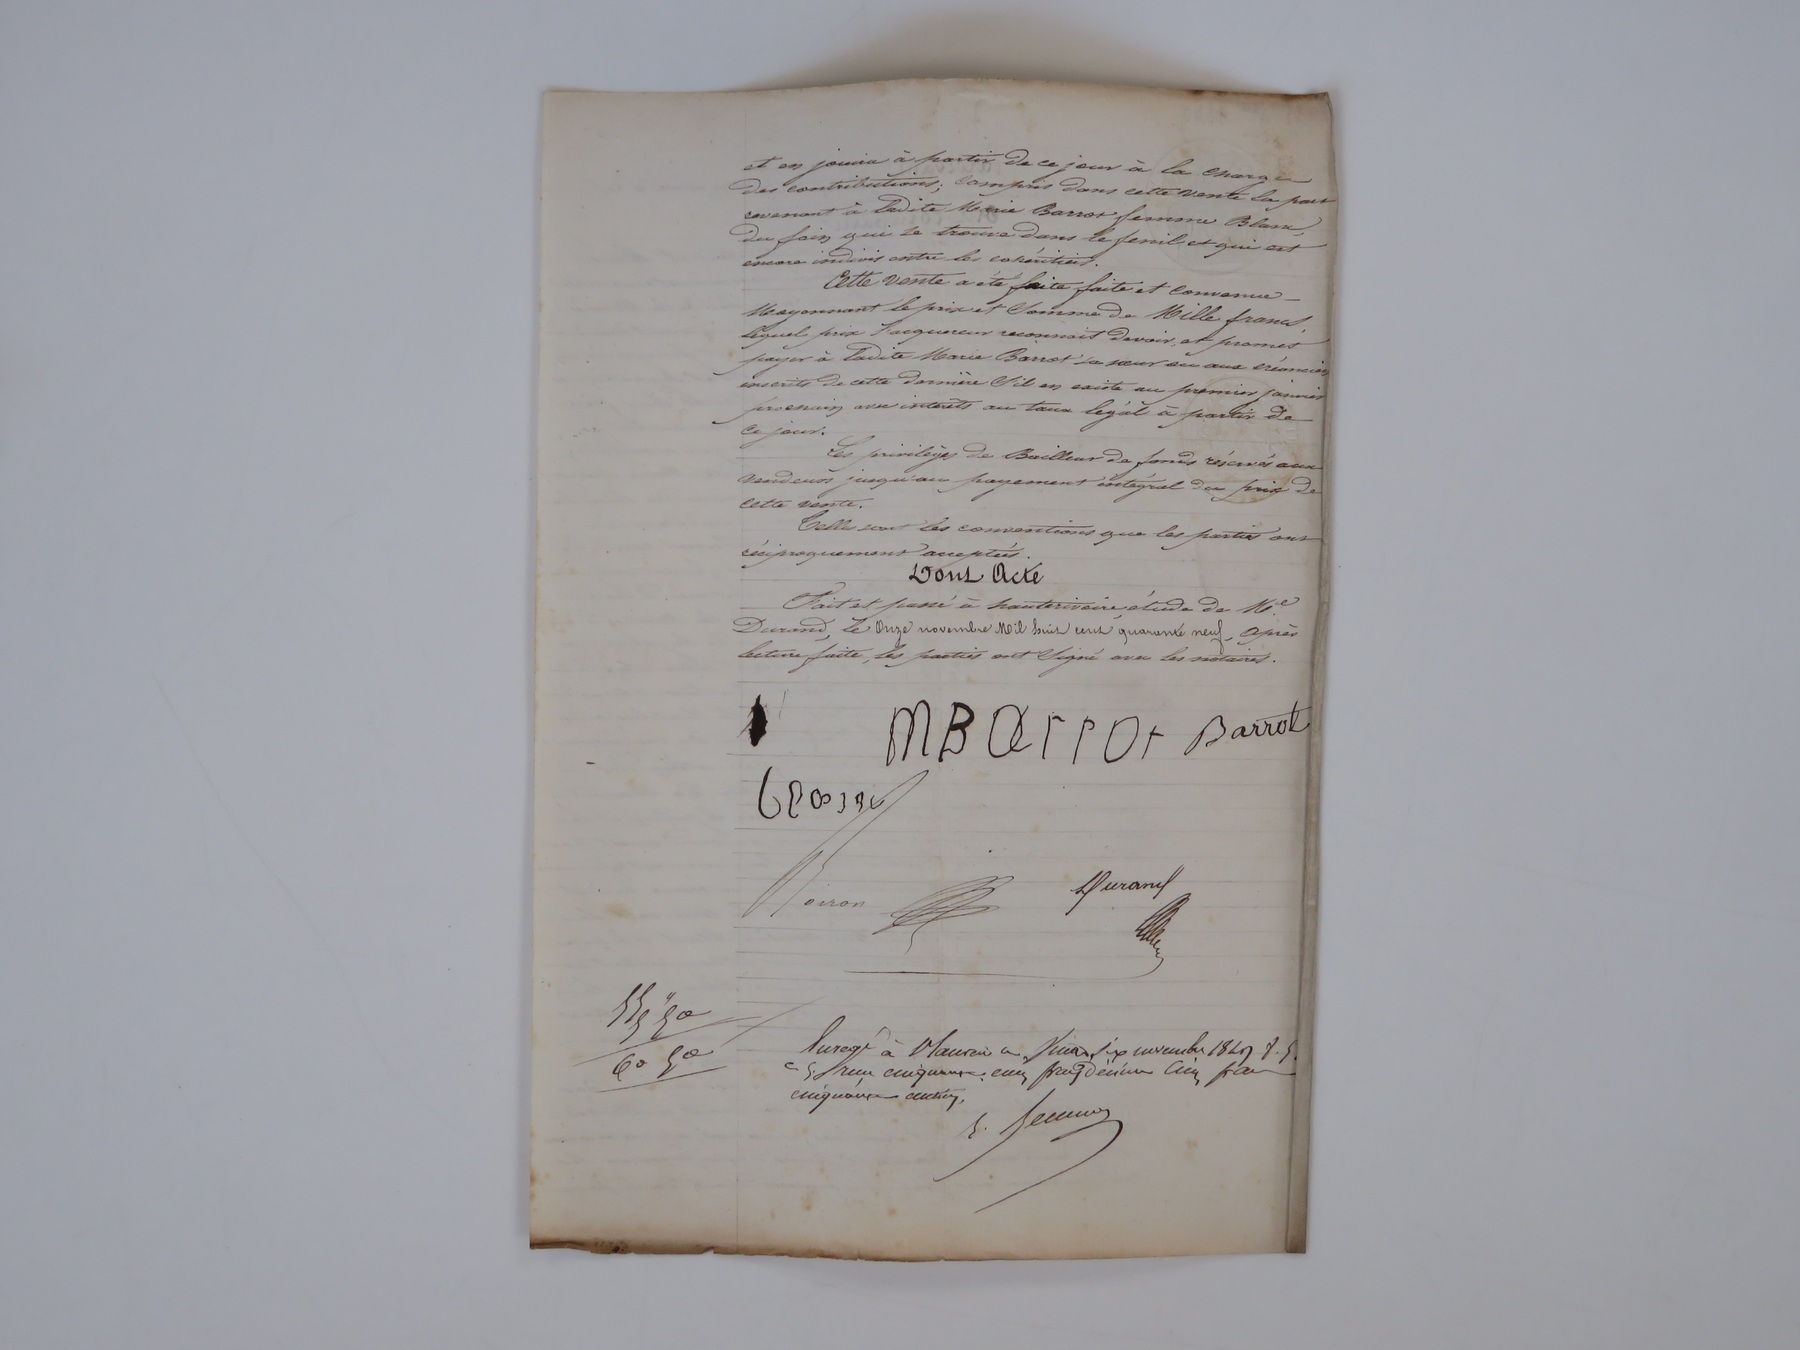 et en jouira à partir de ce jour à la charge
des contributions; compris dans cette vente la part
revenant à ladite Marie Barrot femme Blanc,
du foin qui se trouve dans le fenil et qui est
encore indivis entre les cohéritiers.
Cette vente a été faite faite et convenue
Moyennant le prix et Somme de Mille francs,
lequel prix l'acquereur reconnait devoir, et promet
payer à ladite Marie Barrot sa sœur ou aux créanciers
inscrits de cette dernière S'il en existe au premier janvier
prochain avec intérêts au taux légal à partir de
ce jour.
Les privilèges de Bailleur de fonds réservés aux
vendeurs jusqu'au payement intégral du prix de
cette vente.
Telles sont les conventions que les parties ont
réciproquement acceptées.
Dont Acte
Fait et passé à hauterivoire étude de Me
Durand, le Onze novembre Mil huit cent quarante neuf, après
lecture faite, les parties ont Signé avec les notaires.
MBarrot Barrot
Durand
55 " 50
60 50
à le Seize novembre 1849 f.
cinquante cinq francs décime Cinq francs
cinquante centimes.